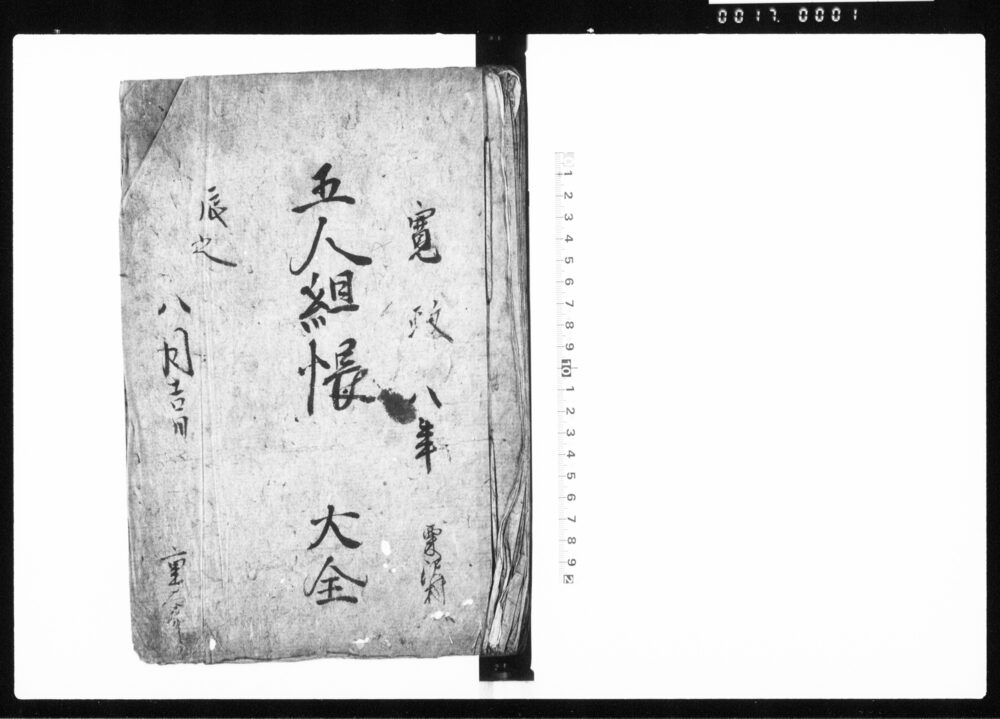 0017. 0001
寛政八年
栗沢村
五人組帳
大全
辰之
八月吉日
1 2 3 4 5 6 7 8 9 10 1 2 3 4 5 6 7 8 9